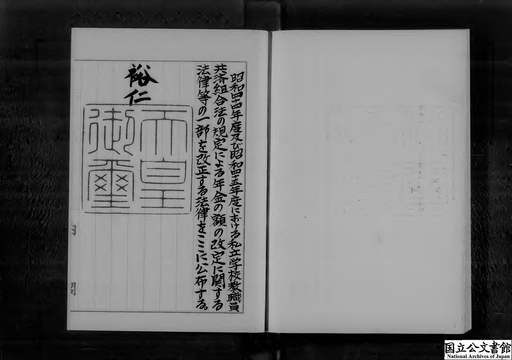 昭和四十四年度及び昭和四十五年度における私立学校教職員
共済組合法の規定による年金の額の改定に関する
法律等の一部を改正する法律をここに公布する。
裕仁
天皇
御璽
国立公文書館
National Archives of Japan